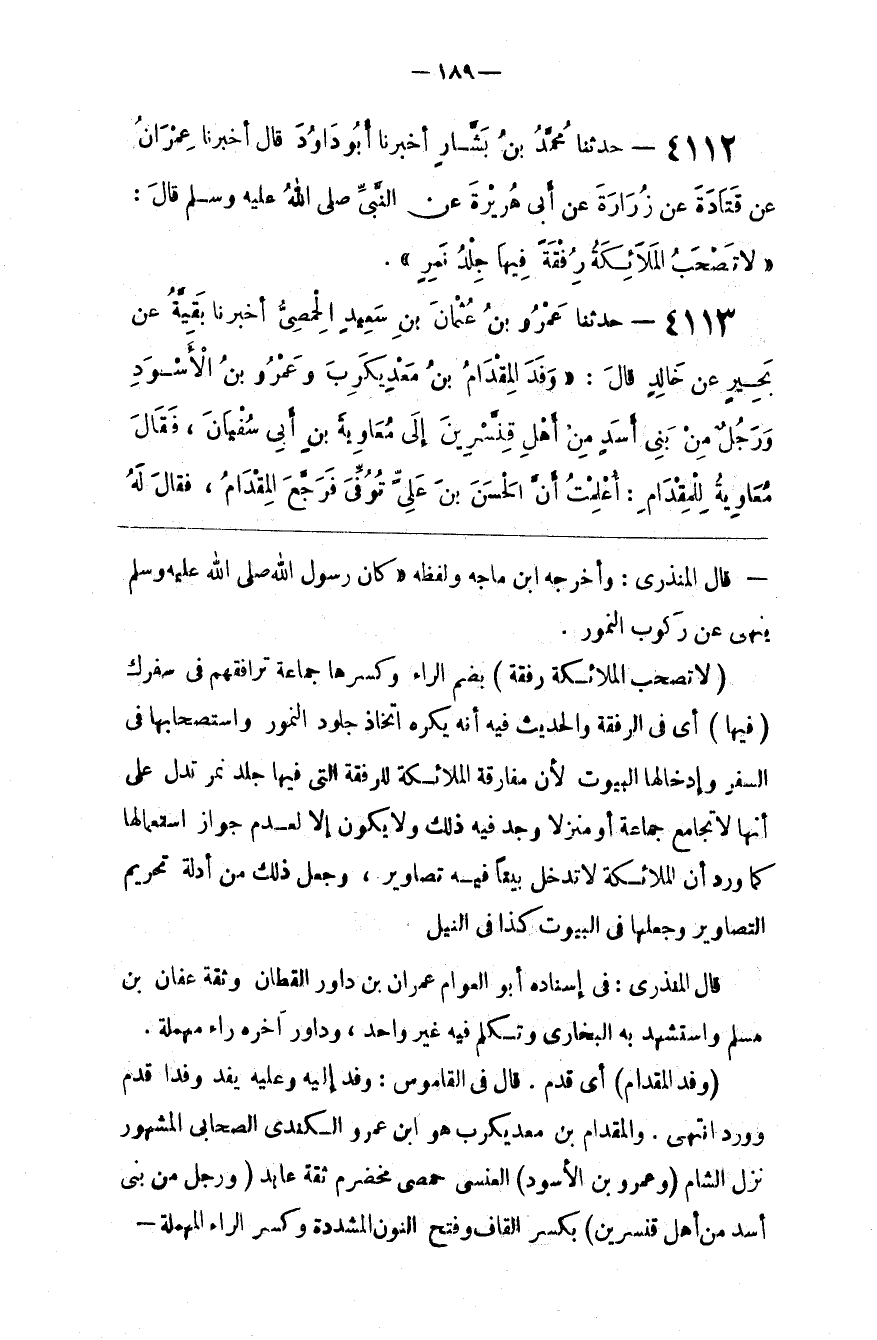 — ١٨٩ —
٤١١٢ — حدثنا مُحمَّدُ بنُ بَشَّارٍ أخبرنا أَبُو دَاوُدَ قال أخبرنا عِمْرَانُ
عن قَتَادَةَ عن زُرَارَةَ عن أبى هُرِيْرَةَ عن النَّبىِّ صلى اللهُ عليه وسلم قالَ :
« لا تَصْحَبُ المَلَائِكَةُ رِفْقَةً فِيهَا جِلْدُ نَمِرٍ » .
٤١١٣ — حدثنا عَمْرُو بنُ عُثْمانَ بنِ سَعِيدٍ الْحِمصِيُّ أخبرنا بَقِيَّةُ عن
بَحِيرٍ عن خَالِدٍ قالَ : « وَفَدَ المِقْدَامُ بنُ مَعْدِيكَرِبَ وعَمْرُو بنُ الْأَسْوَدِ
وَرَجُلٌ مِنْ بَنِى أسَدٍ مِنْ أَهْلِ قِنَّسْرِينَ إلَى مُعَاوِيةَ بنِ أبي سُفْيَانَ ، فَقَالَ
مُعَاوِيةُ لِلْمِقْدَامِ : أُعْلِمْتُ أنَّ الْحسَنَ بنَ عَلِيٍّ تُوُفِّىَ فَرَجَّعَ المِقْدَامُ ، فقالَ لَهُ
— قال المنذرى : وأخرجه ابن ماجه ولفظه « كان رسول الله صلى الله عليه وسلم
ينهى عن ركوب النمور .
( لا تصحب الملائكة رفقة ) بضم الراء وكسرها جماعة ترافقهم فى سفرك
( فيها ) أى فى الرفقة والحديث فيه أنه يكره اتخاذ جلود النمور واستصحابها فى
السفر وإدخالها البيوت لأن مفارقة الملائكة للرفقة التى فيها جلد نمر تدل على
أنها لا تجامع جماعة أو منزلا وجد فيه ذلك ولا يكون إلا لعدم جواز استعمالها
كما ورد أن الملائكة لا تدخل بيتاً فيه تصاوير ، وجعل ذلك من أدلة تحريم
التصاوير وجعلها فى البيوت كذا فى النيل
قال المنذرى : فى إسناده أبو العوام عمران بن داور القطان وثقة عفان بن
مسلم واستشهد به البخارى وتكلم فيه غير واحد ، وداور آخره راء مهملة .
(وفد المقدام) أى قدم . قال فى القاموس : وفد إليه وعليه يفد وفدا قدم
وورد انتهى . والمقدام بن معديكرب هو ابن عمرو الكندى الصحابى المشهور
نزل الشام (وعمرو بن الأسود) العنسى حمصى مخضرم ثقة عابد ( ورجل من بنى
أسد من أهل قنسرين) بكسر القاف وفتح النون المشددة وكسر الراء المهملة —